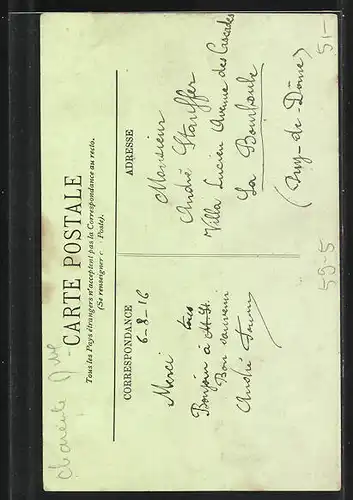 Charente
CARTE POSTALE
Tous les Pays étrangers n'acceptent pas la Correspondance au recto.
(Se renseigner Poste).
CORRESPONDANCE
6-8-16
Merci
Bonjour à tous
Bon souvenir
André
ADRESSE
Monsieur
André Stauffer
Villa Lucien Avenue des Cascades
La Bourboule
(Puy-de-Dôme)
59-5
51-